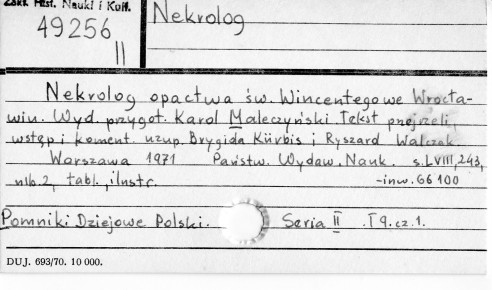 Zakł. Hist. Nauki i Kośc.
49256
II
Nekrolog
Nekrolog opactwa św. Wincentego we Wrocła-
wiu. Wyd. przygot. Karol Maleczyński Tekst przejrzeli,
wstęp i koment. uzup. Brygida Kürbis i Ryszard Walczak.
Warszawa 1971 Państw. Wydaw. Nauk. s. LVIII, 243,
nlb. 2, tabl., ilustr. -inw. 66100
Pomniki Dziejowe Polski. Seria II . T 9. cz. 1.
DUJ. 693/70. 10 000.